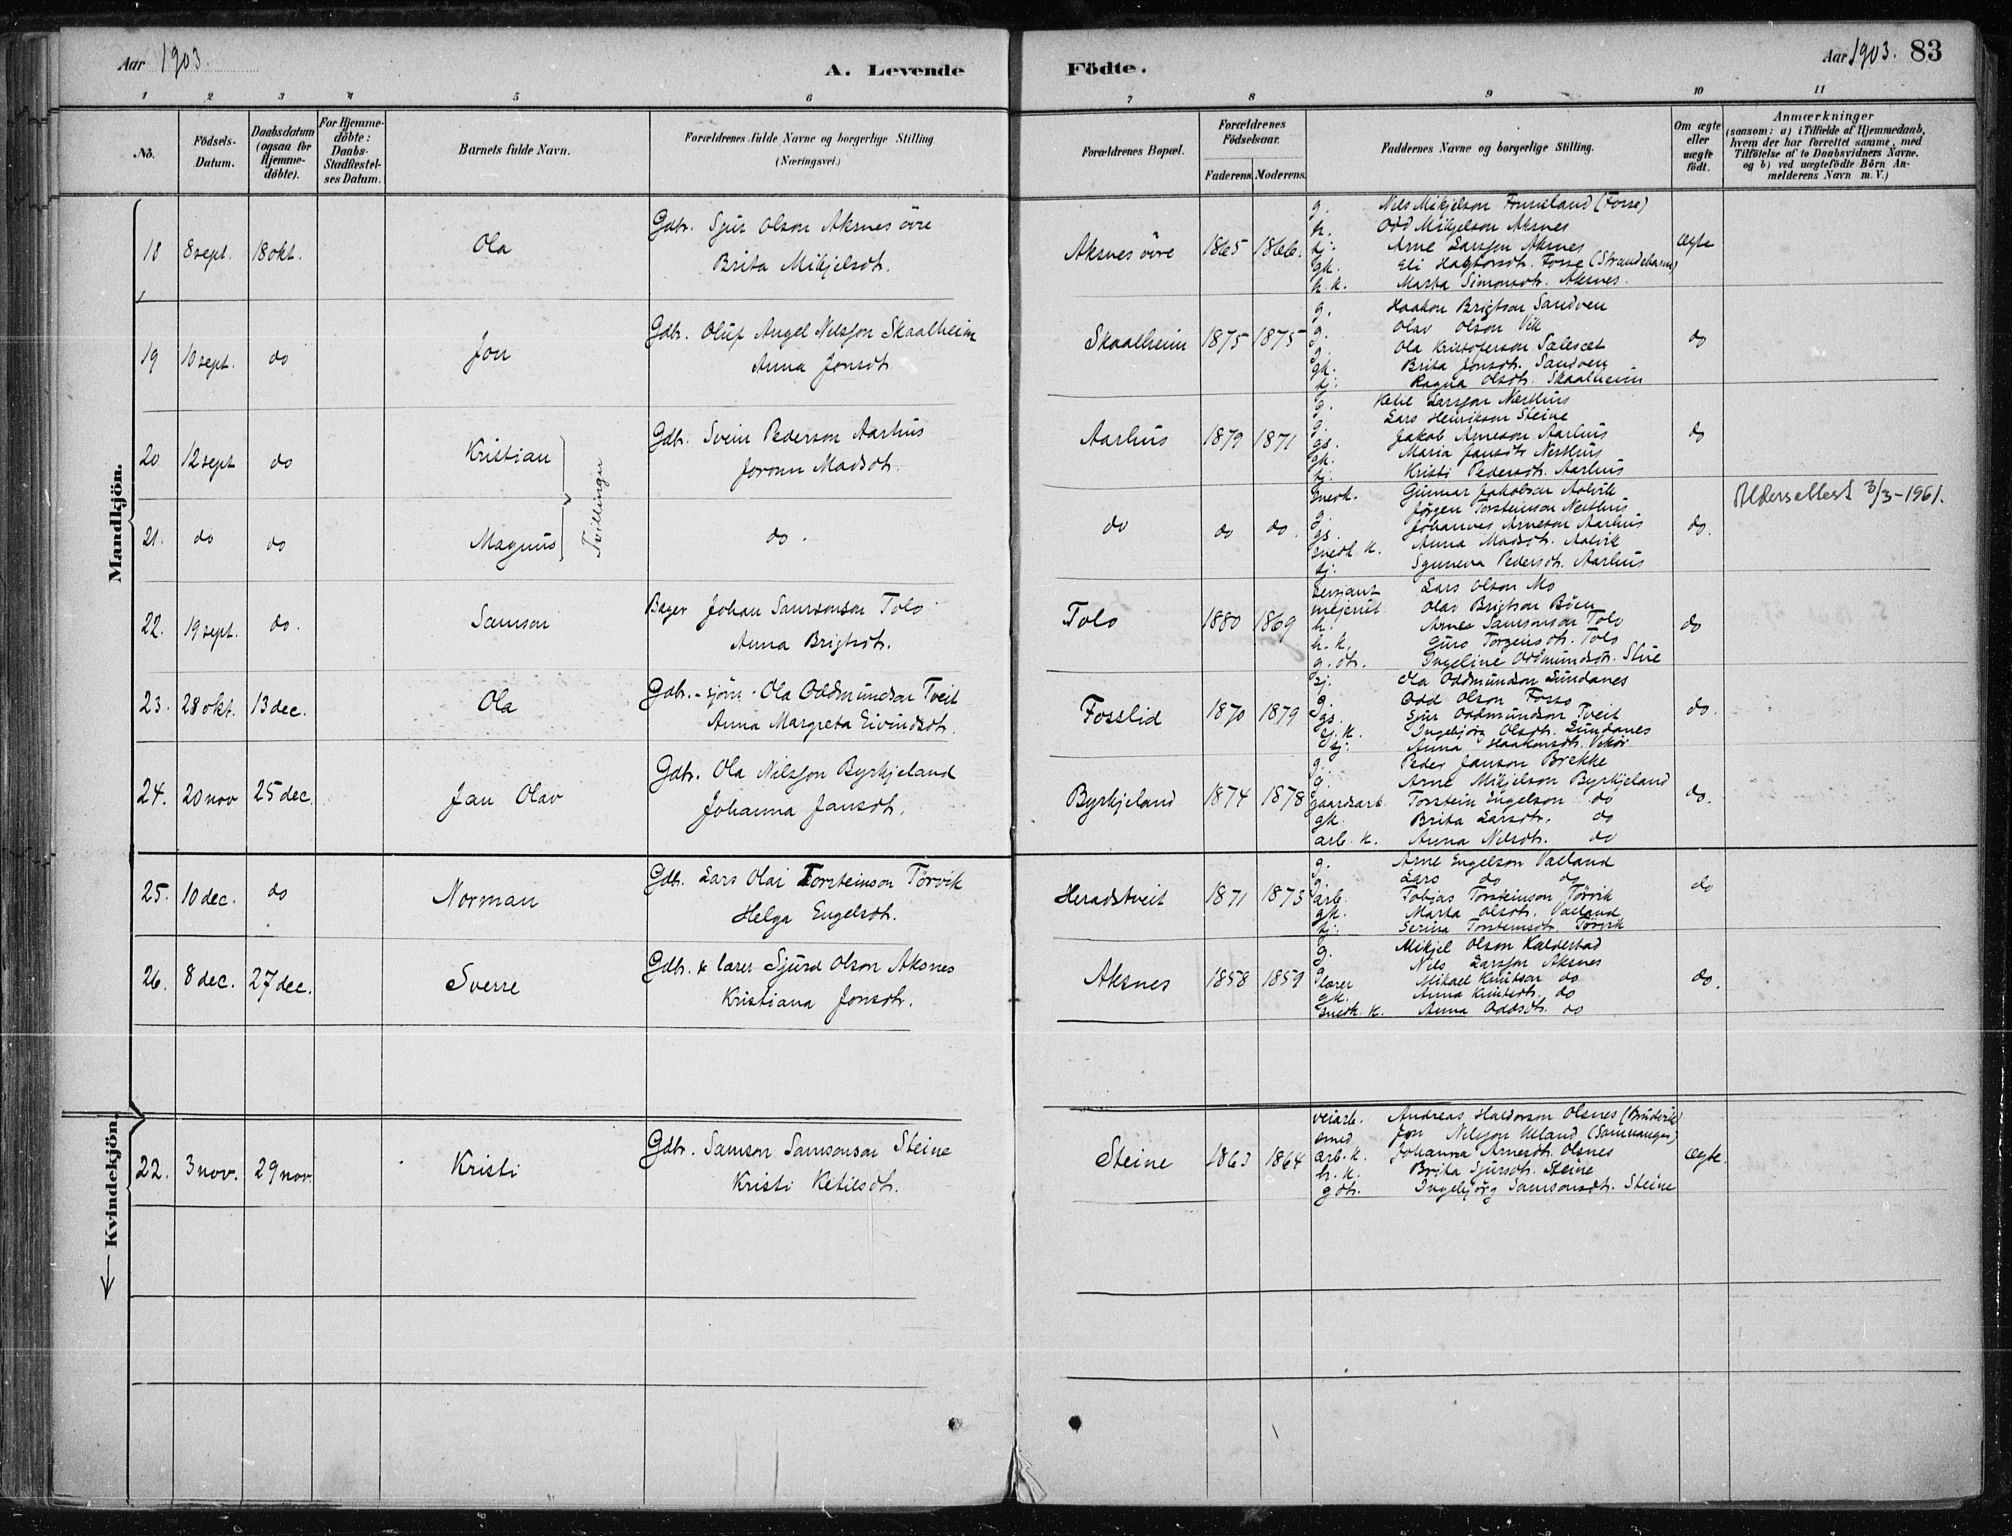 Aar 1903.
A. Levende
Födte.
Aar 1903. 83
1 2 3 4 5 6 7 8 9 10 11
No.
Födsels-Datum.
Daabsdatum (ogsaa for Hjemme-döbte).
For Hjemme-döbte: Daabs-Stadfæstel-ses Datum.
Barnets fulde Navn.
Forældrenes fulde Navne og borgerlige Stilling
(Næringsvei.)
Forældrenes Bopæl.
Forældrenes Födselsaar.
Faderens. Moderens.
Faddernes Navne og borgerlige Stilling.
Om ægte eller uægte födt.
Anmærkninger
(saasom: a) i Tilfælde af Hjemmedaab, hvem der har forrettet samme, med Tilföielse af to Daabsvidners Navne. og b) ved uægtefödte Börn An-melderens Navn m. V.)
Mandkjön.
18 8 sept. 18 okt. Ola
Gdbr. Sjur Olson Aksnes övre
Brita Mikjelsdt.
Aksnes övre 1865 1866. ægte
g. Nils Mikjelson Fonneland (Fosse)
h. Odd Mikjelson Aksnes
sj: Arne Larsson Aksnes
gk. Eli Fosse (Strandebarm)
h.k. Marta Simonsdt. Aksnes.
19 10 sept. do Jon
Gdbr. Oluf Angel Nilsson Skaalheim
Anna Jonsdt.
Skaalheim 1875 1875 do
g. Haakon Brigtson Sandven
g. Olav Olson Vik
g. Ola Kristoferson
gk. Brita Jonsdt. Sandven
sj: Ragna Olsdt. Skaalheim
20 12 sept do Kristian
Tvillinger
Gdbr. Svein Pederson Aarhus
Jorunn Madsdt.
Aarhus 1879 1871 do
g. Ketil Larsson Nerthus
g. Lars Henrikson Steine
gs. Jakob Arneson Aarhus
gk. Maria Jansdt. Nerthus
sj: Kristi Pedersdt. Aarhus
21. do do Magnus
do.
do do do. do.
snedk. Gunnar Jakobson Aalvik
g. Jörgen Torsteinson Nerthus
gs. Johannes Arneson Aarhus
snedk. k. Anna Madsdt. Aalvik
sj: Synneva Pedersdt. Aarhus
3/3-1961.
22. 19 sept. do. Samson
Bager Johan Samsonson Tolo
Anna Brigtsdt.
Tolo 1880 1869 do
Sersjant Lars Olson Mo
mejerist Olav Brigtson Börn
h. Arne Samsonson Tolo
h.k. Guro Torgeirsdt. Tolo
g.dt. Ingeline Oddmundsdt. Stue
23. 28 okt. 13 dec. Ola
Gdbr.-sjöm. Ola Oddmundson Tveit
Anna Margreta Eivindsdt.
Fosslid 1870 1879 do.
sj. Ola Oddmundson Sundanes
g. Odd Olson Fosso
gs. Sjur Oddmundson Tveit
sj.k. Ingebjörg Olsdt. Sundanes
sj: Anna Haakonsdt. Vikör
24. 20 nov 25 dec. Jan Olav
Gdbr. Ola Nilsson Byrkjeland
Johanna Jansdt.
Byrkjeland 1874 1878 do.
g. Peder Janson Brekke
g. Arne Mikjelson Byrkjeland
gaardsarb. Torstein Engelson do
gk. Brita Larsdt. do
arb. k. Anna Nilsdt. do
25. 10 dec. do Norman
Gdb. Lars Olai Torsteinson Törvik
Helga Engelsdt.
Heradstveit 1871 1873 do
g. Arne Engelson Vaeland
g. Lars do do
arb. Tobias Torsteinson Törvik
gk. Marta Olsdt. Vaeland
sj: Serina Torsteinsdt. Törvik
26. 8 dec. 27 dec. Sverre
Gdbr. & lærer Sjurd Olson Aksnes
Kristiana Jonsdt.
Aksnes 1858 1859 do.
g. Mikjel Olson Kaldestad
g. Nils Larsson Aksnes
lærer Mikael Knutson do
gk. Anna Knutsdt. do
snedk. k. Anna Oddsdt. do
Kvindekjön.
22. 3 nov. 29 nov. Kristi
Gdbr. Samson Samsonson Steine
Kristi Ketilsdt.
Steine 1863 1864 ægte.
veiarb. Andreas Haldorson Olsnes
smed Jon Nilsson Uland (Samnanger)
arb.k. Johanna Arnesdt. Olsnes
h.k. Brita Sjursdt. Steine
gdt. Ingebjörg Samsonsdt. Steine